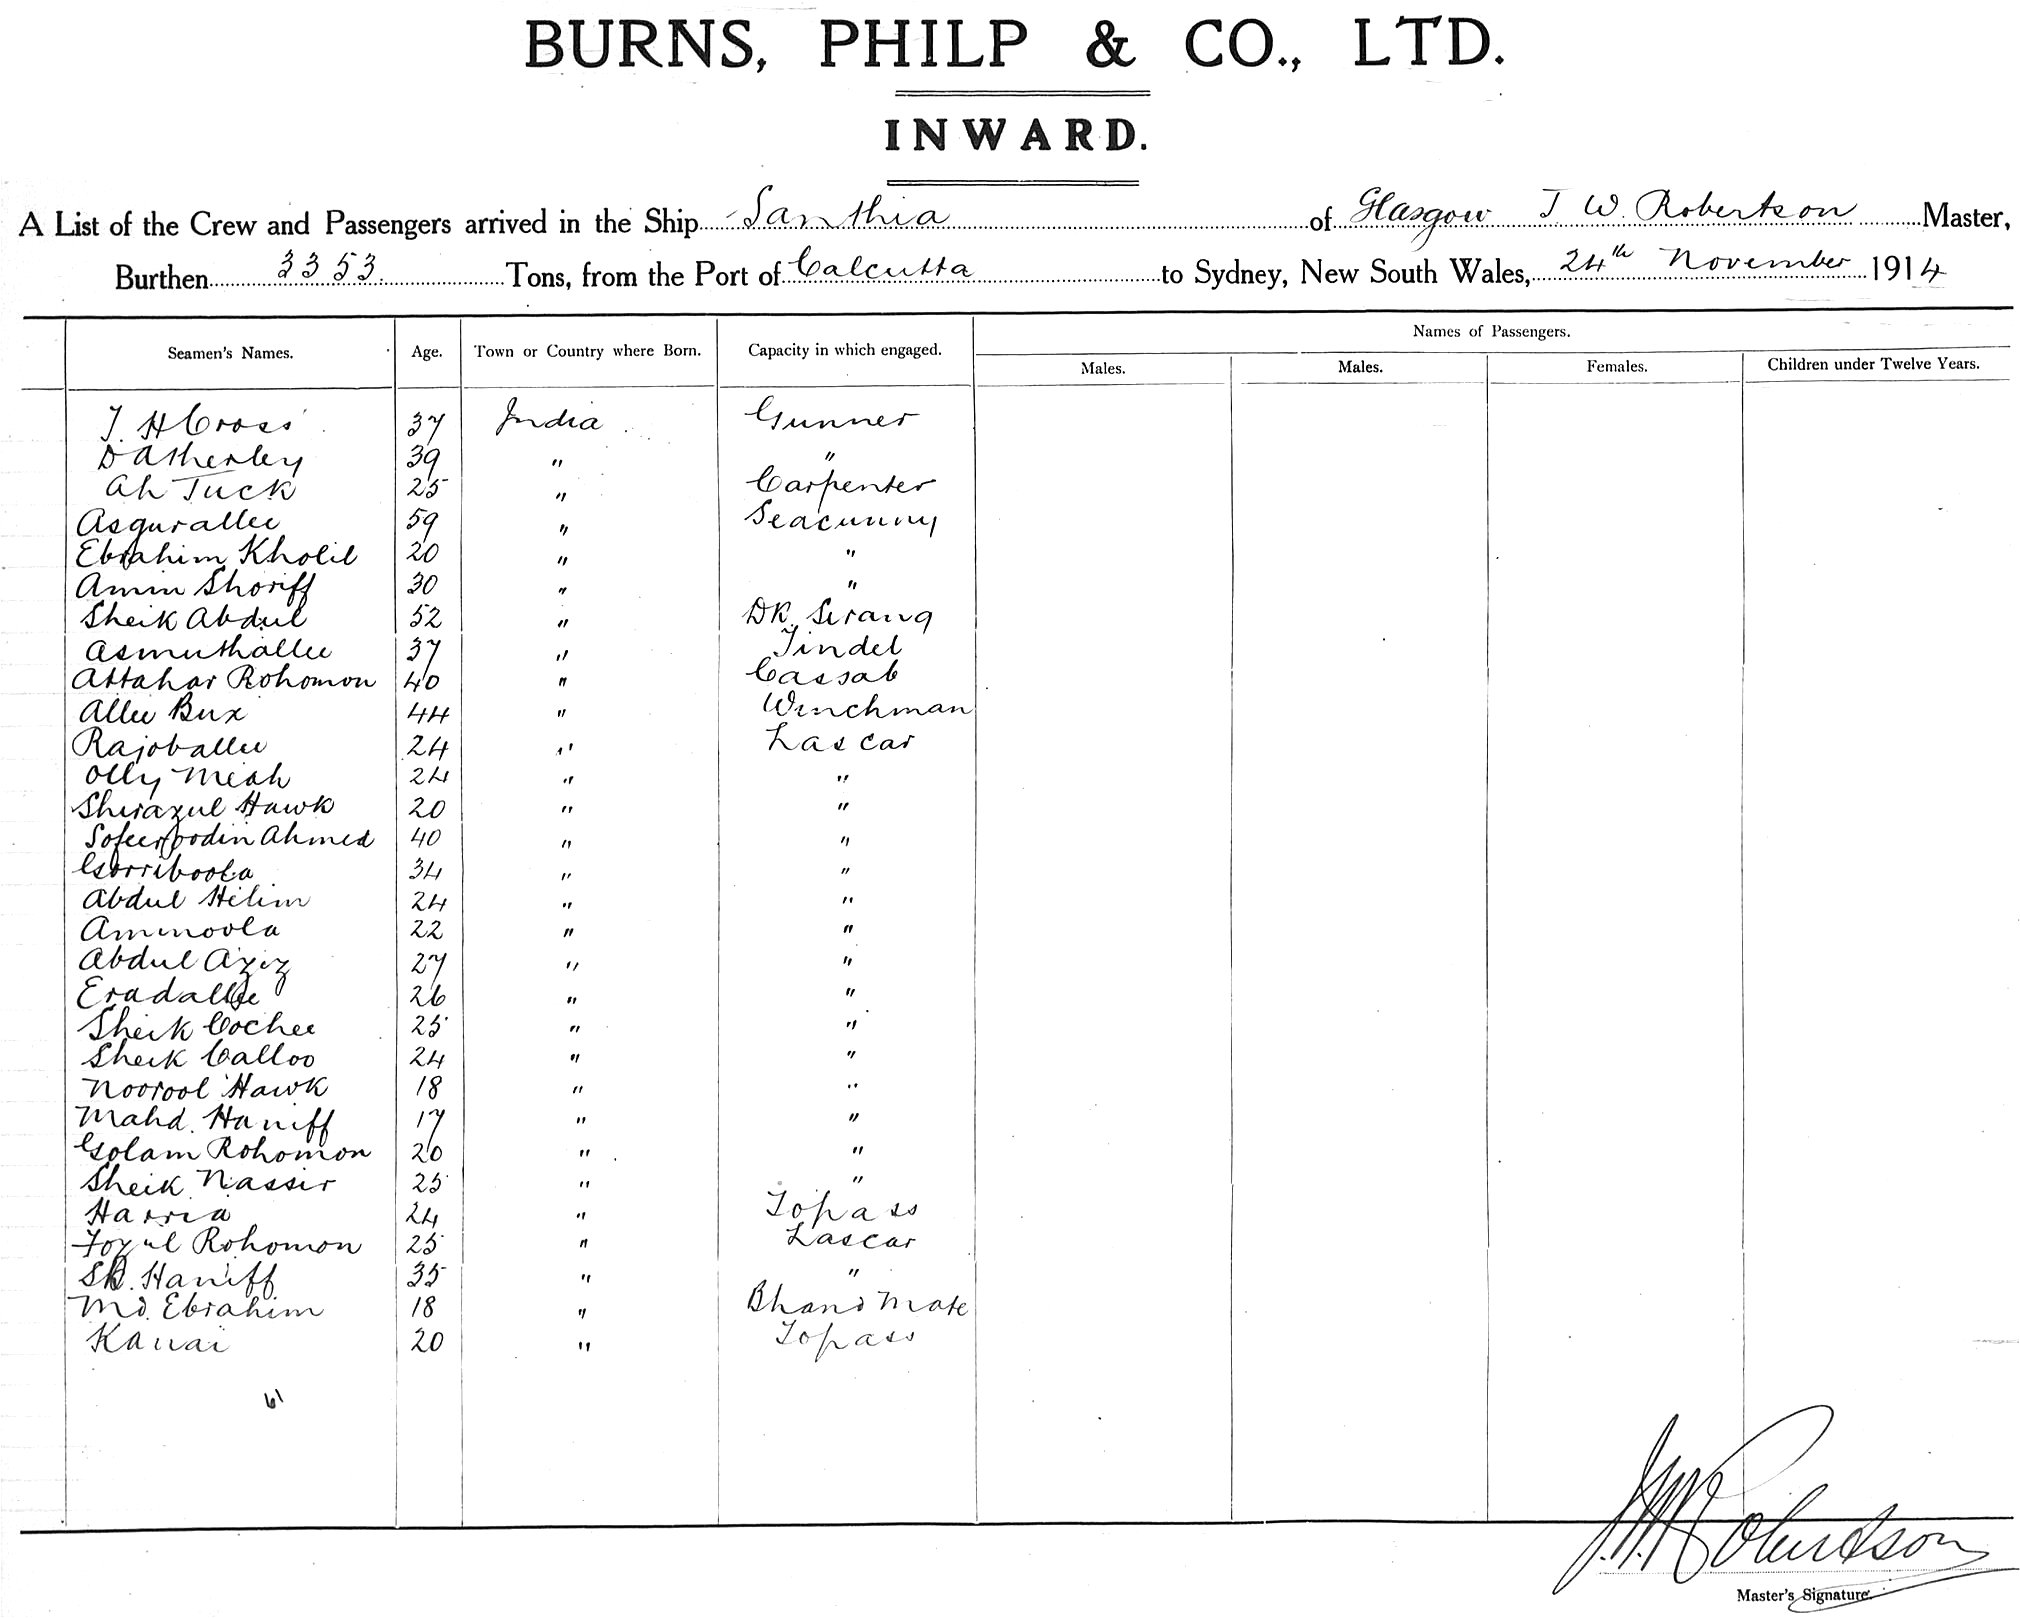 BURNS, PHILP & CO., LTD.
INWARD.
A List of the Crew and Passengers arrived in the Ship Santhia of Glasgow J W. Robertson Master,
Burthen 3353. Tons, from the Port of Calcutta to Sydney, New South Wales, 24th November 1914
Names of Passengers.
Seamen's Names. Age. Town or Country where Born. Capacity in which engaged. Males. Males. Females. Children under Twelve Years.
J. H Cross 37 India Gunner
D Atherley 39 " "
Ah Tuck 25 " Carpenter
Asgurallee 59 " Seacunny
Ebrahim Kholil 20 " "
Amin Shoriff 30 " "
Sheik Abdul 52 " DK. Serang
Asmuthallee 37 " Tindel
Attahar Rohomon 40 " Cassab
Allee Bux 44 " Winchman
Rajoballee 24 " Lascar
Olly Meah 24 " "
Shirazul Hawk 20 " "
Ahmed 40 " "
Gorriboola 34 " "
Abdul Helim 24 " "
Aminoola 22 " "
Abdul Aziz 27 " "
Eradallee 26 " "
Sheik Cochee 25 " "
Sheik Calloo 24 " "
Noorool Hawk 18 " "
Mahd. Haniff 17 " "
Golam Rohomon 20 " "
Sheik Nassir 25 " "
Harria 24 " Topass
Fozul Rohomon 25 " Lascar
Sk. Haniff 35 " "
Md. Ebrahim 18 " Bhand Mate
Kanai 20 " Topass
61
J. W. Robertson
Master's Signature.